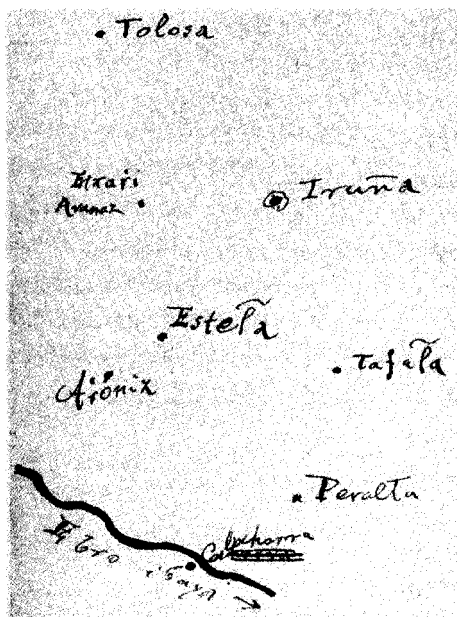 Tolosa
Etxari
Aranaz
Iruña
Estel̃a
Tafal̃a
Aŕoniz
Peralta
Calahorra
Ebro ibaya